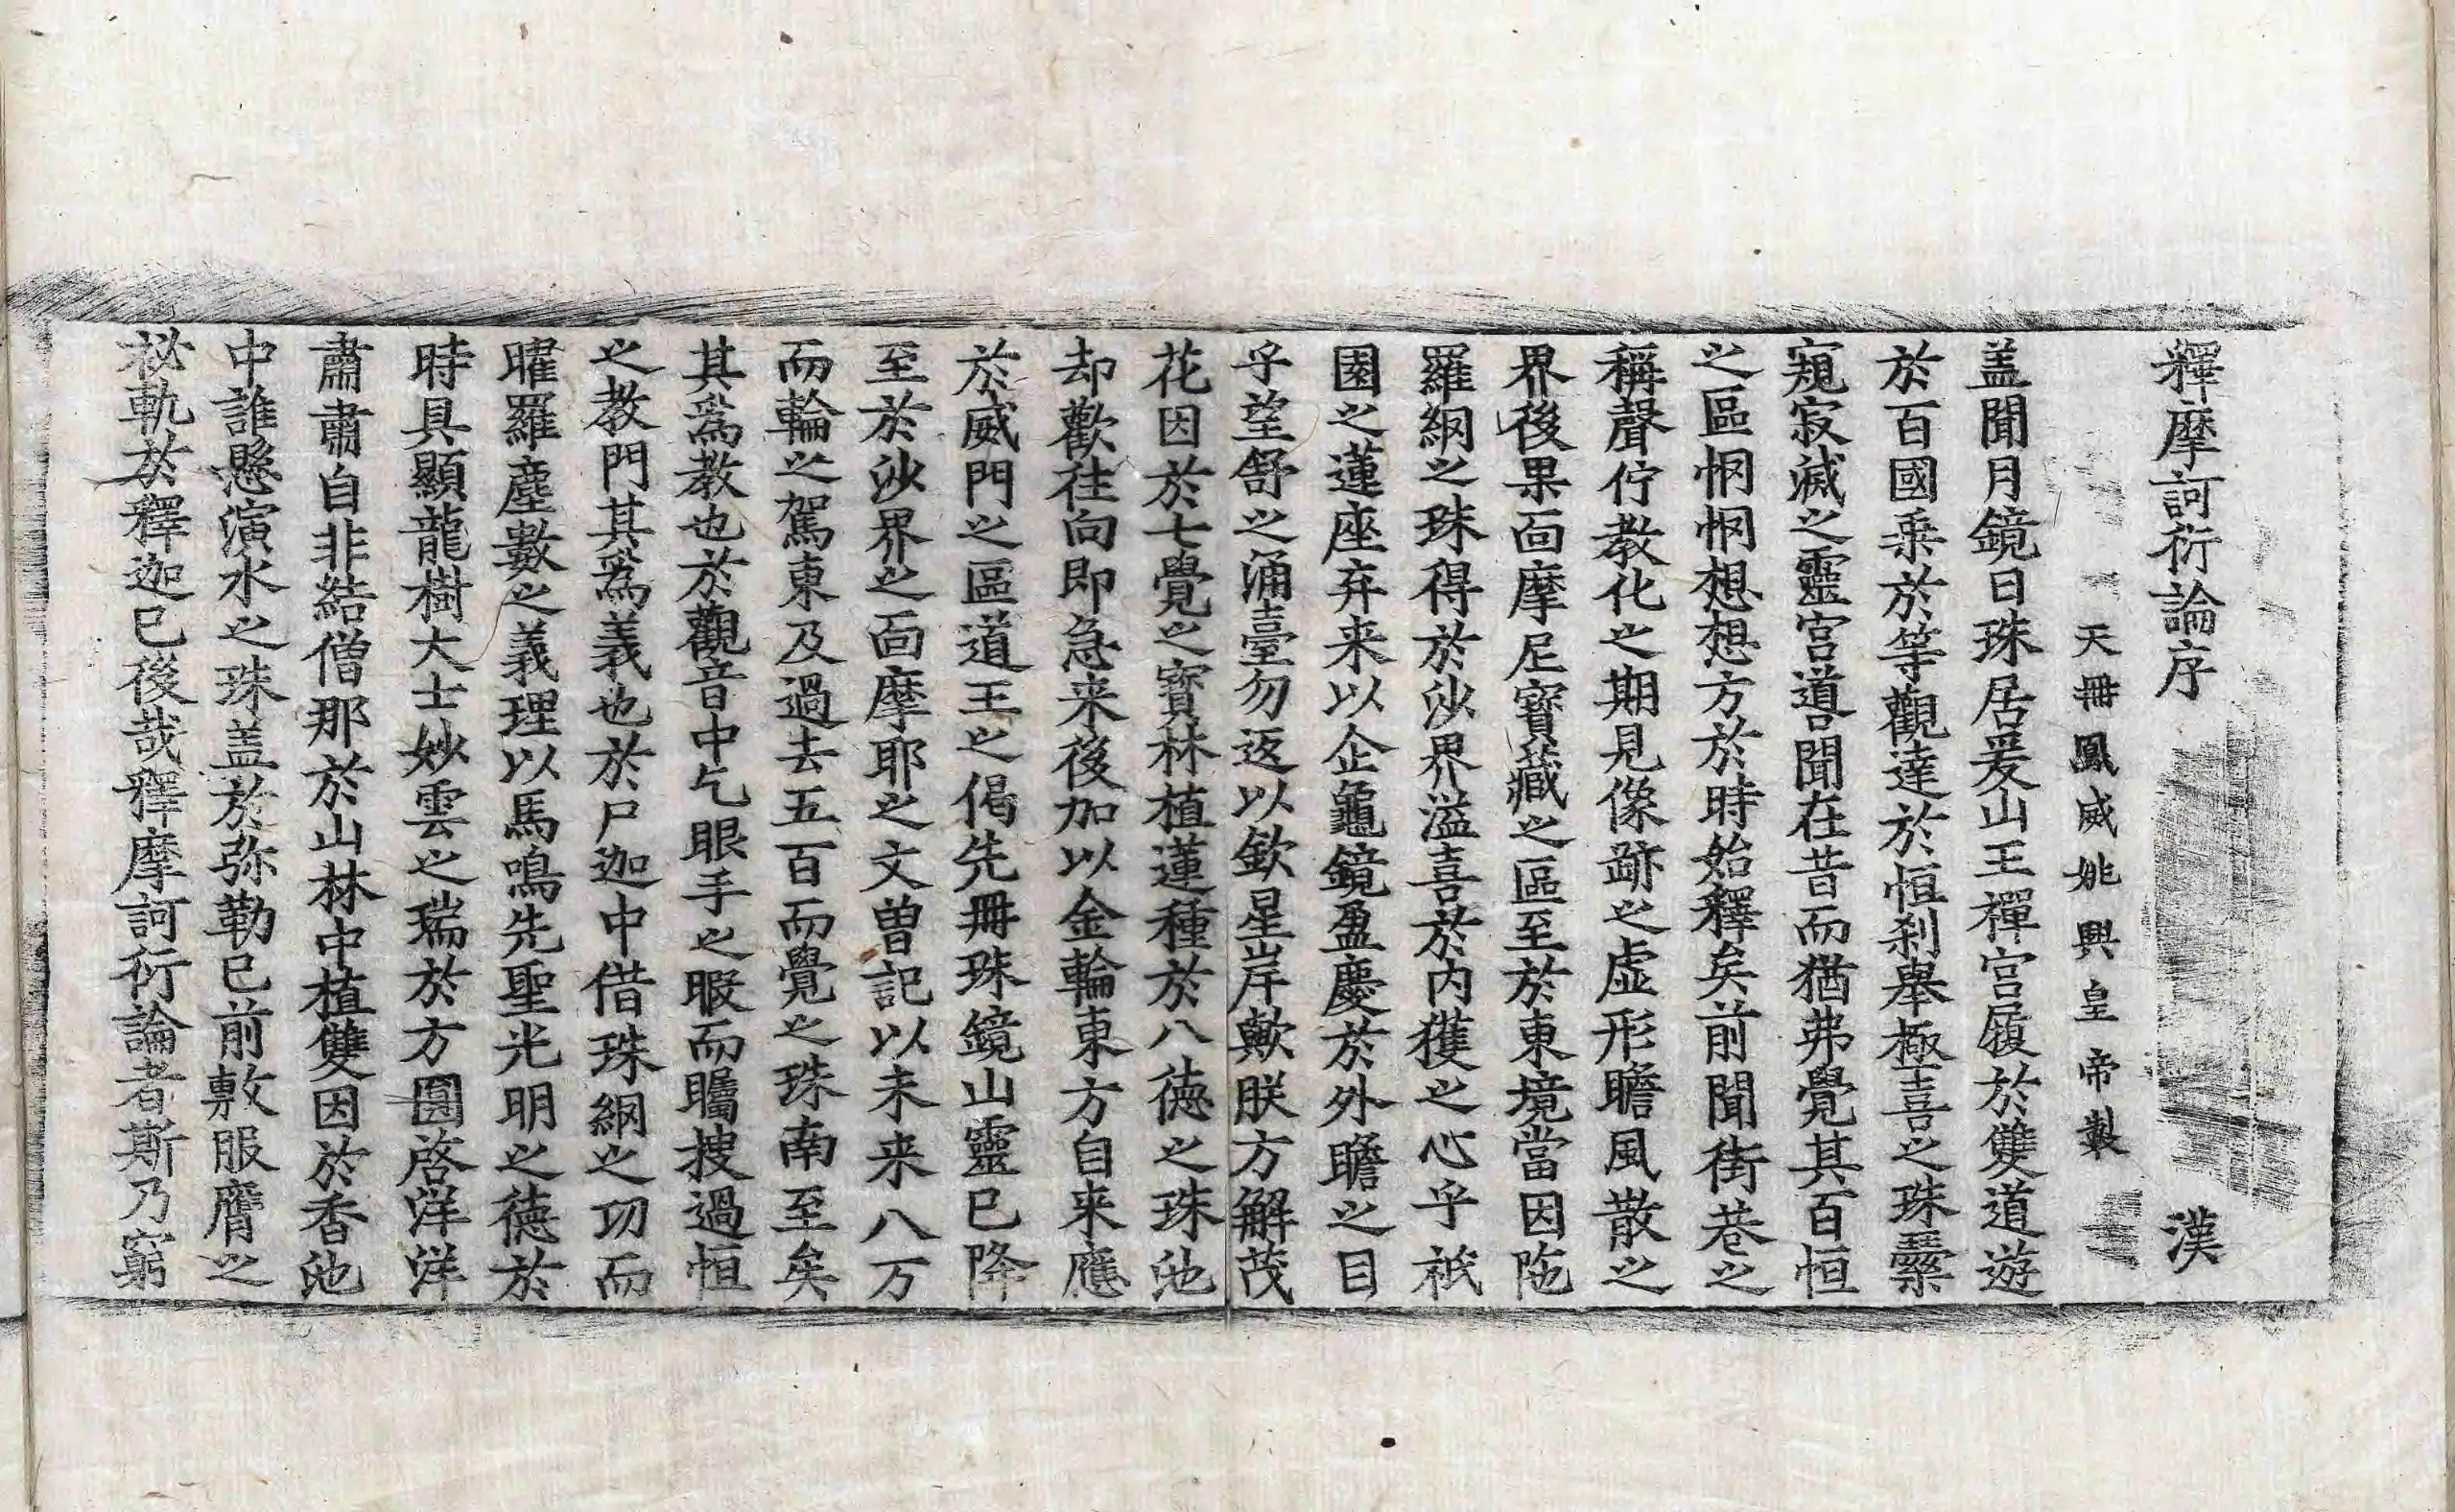 釋摩訶衍論序 漢
天冊鳳威姚興皇帝製
盖聞月鏡日珠居爰山王禪宫履於雙道遊
於百國乘於等觀達於恒刹舉極喜之珠
窺寂滅之靈宫道聞在昔而猶弗覺其百恒
之區惘惘想想方於時始釋矣前聞街巷之
稱聲佇教化之期見像跡之虚形瞻風散之
界後果面摩尼寶藏之區至於東境當因陁
羅網之珠得於沙界溢喜於内獲之心乎祇
園之蓮座弃来以企龜鏡盈慶於外瞻之目
乎望舒之涌臺勿返以欽星岸歟朕方解茂
花因於七覺之寶林植蓮種於八德之珠池
却歡往向即急来後加以金輪東方自来應
於威門之區道王之偈先冊珠鏡山靈已降
至於沙界之面摩耶之文曽記以未来八万
而輪之駕東及過去五百而覺之珠南至矣
其爲教也於觀音中乞眼手之暇而矚搜過恒
之教門其爲義也於尸迦中借珠網之功而
曜羅塵數之義理以馬鳴先聖光明之德於
時具顯龍樹大士妙雲之瑞於方圓啓洋洋
肅肅自非結僧那於山林中植雙因於香池
中誰懸演水之珠盖於弥勒已前敷服膺之
祕軌於釋迦已後哉釋摩訶衍論者斯乃窮